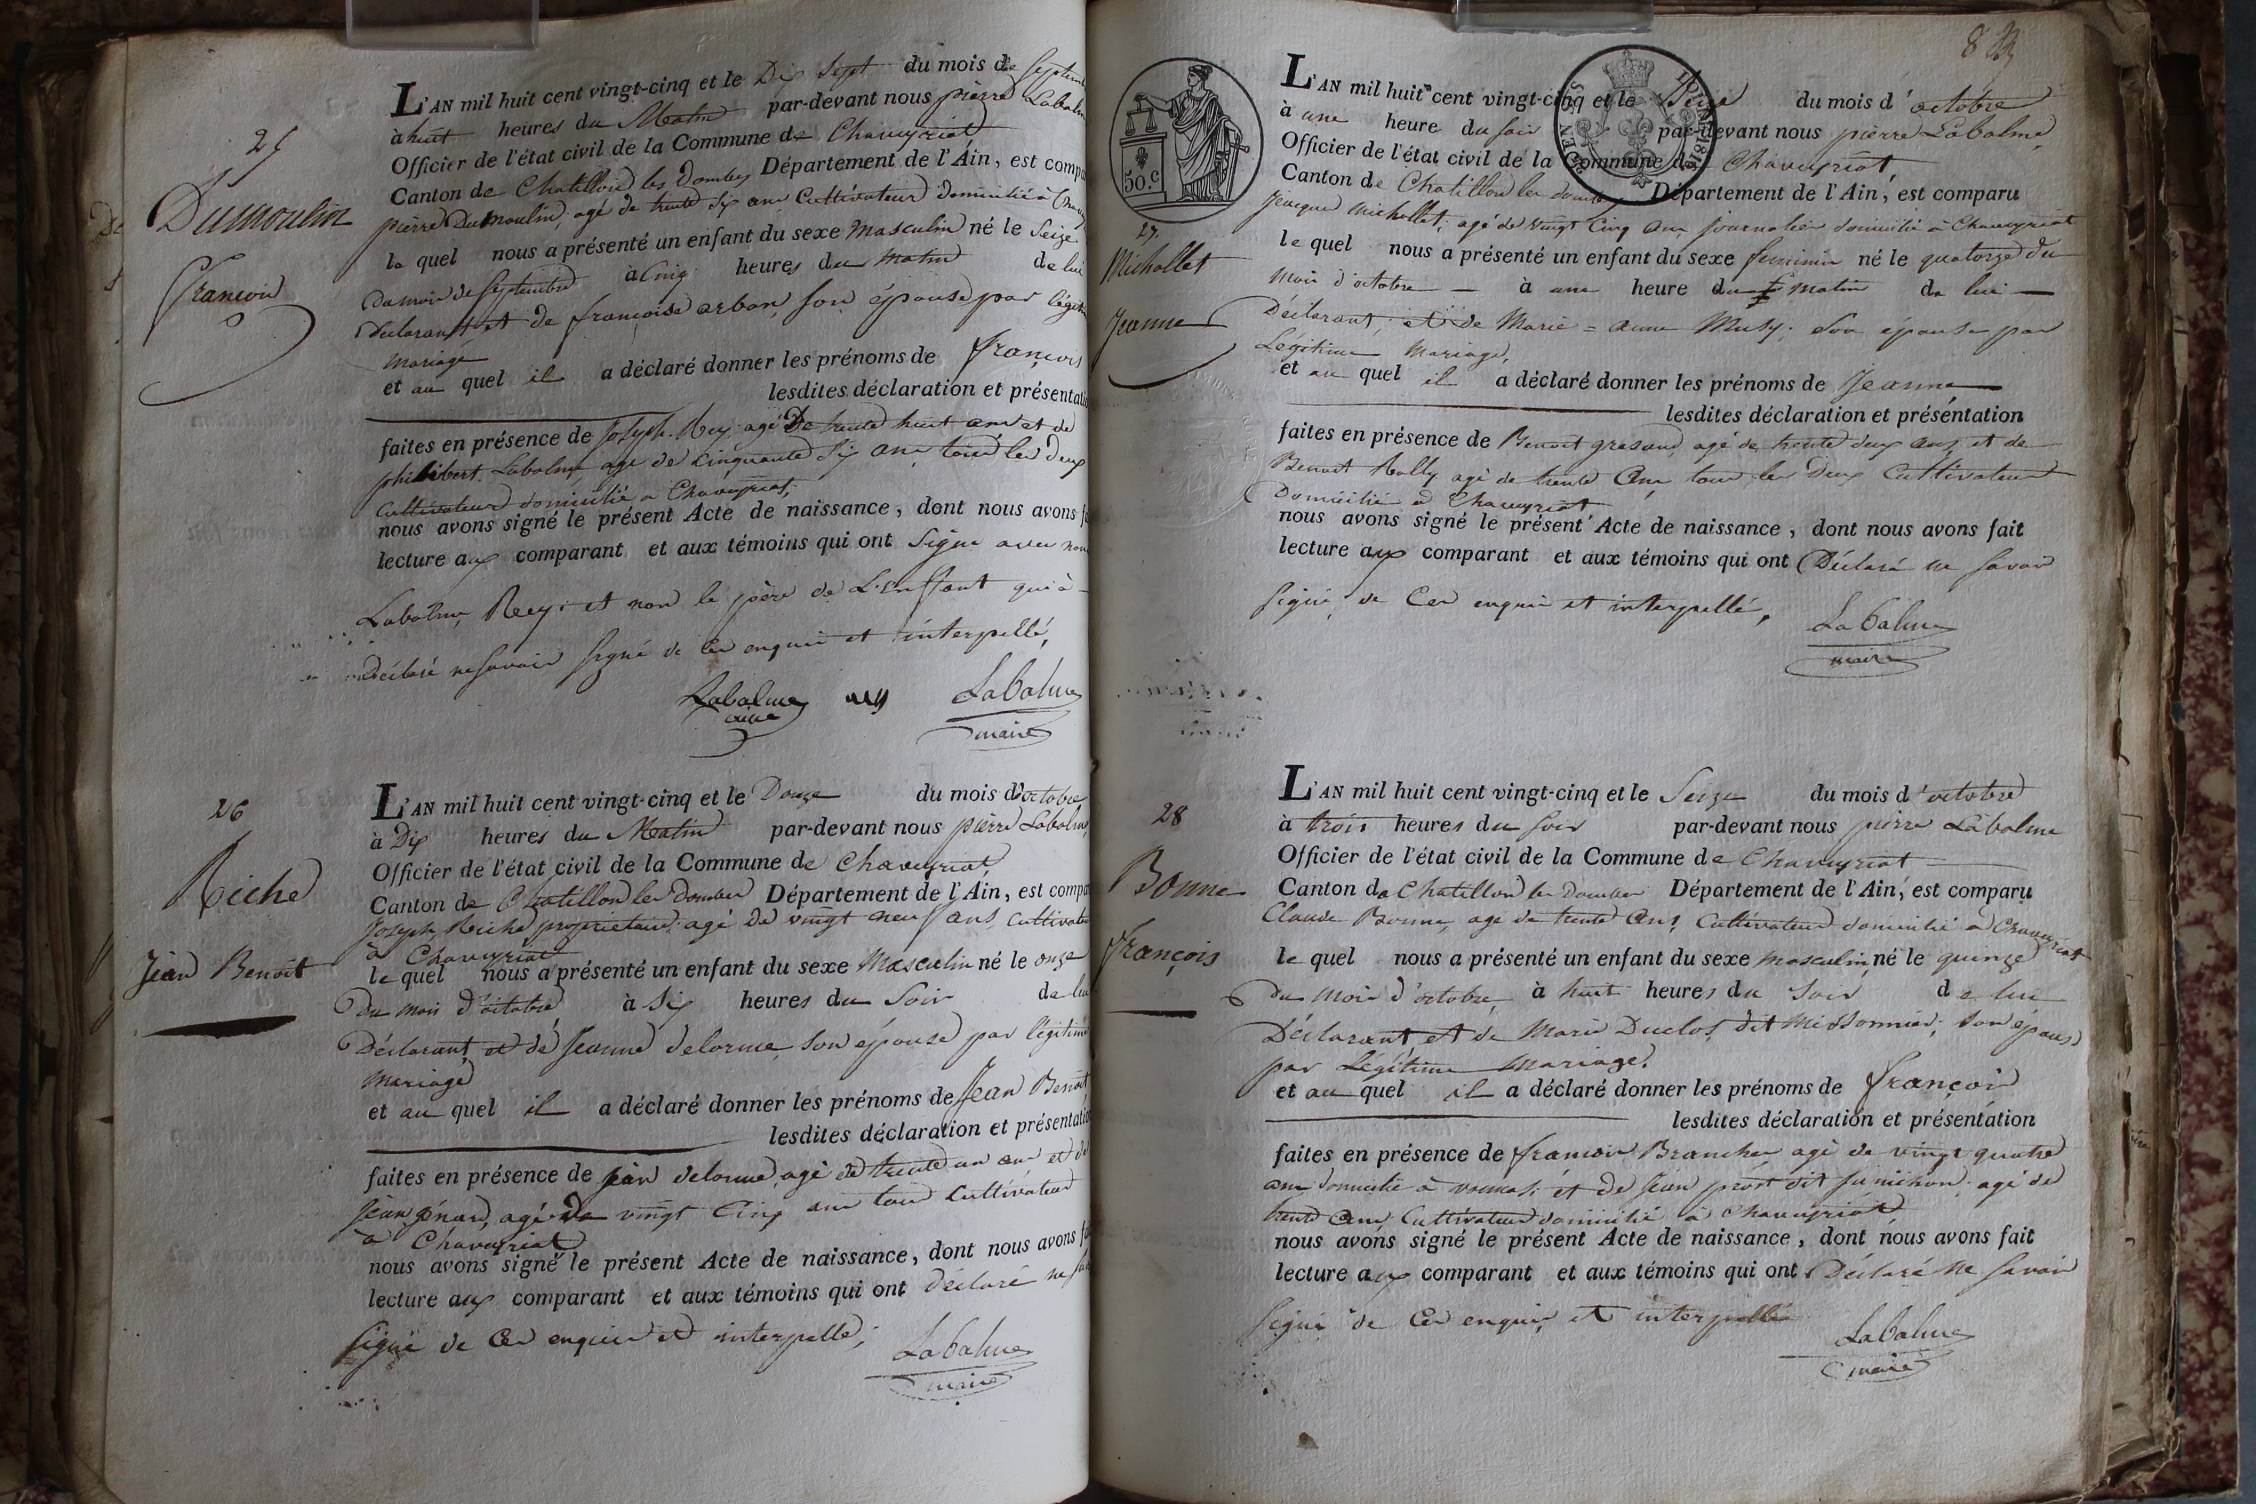 25
Dumoulin
François
L'AN mil huit cent vingt-cinq et le Dix Sept du mois de Septembre
à huit heures du Matin par-devant nous pierre Labalme
Officier de l'état civil de la Commune de Chaveyriat
Canton de Chatillon les Dombes Département de l'Ain, est comparu
pierre Dumoulin, agé de trente Six ans Cultivateur domicilié à
le quel nous a présenté un enfant du sexe masculin né le Seize
du mois de Septembre à Cinq heures du matin de lui
Déclarant et de françoise arban son épouse par légitime
mariage
et au quel il a déclaré donner les prénoms de françois
lesdites déclaration et présentation
faites en présence de Joseph Rey agé De trente huit ans et de
philibert Labalme age de cinquante Six ans tous les deux
Cultivateur domicilié a Chaveyriat,
nous avons signé le présent Acte de naissance, dont nous avons
lecture aux comparant et aux témoins qui ont Signe avec nous
Labalme, Rey, et non le père de L'enfant qui à
Déclaré ne savoir signé de ce enquis et interpellé,
Labalme rey LaBalme
maire
26
Riche
Jean Benoit
L'AN mil huit cent vingt-cinq et le Douze du mois d'octobre
à Dix heures du Matin par-devant nous pierre Labalme
Officier de l'état civil de la Commune de Chaveyriat,
Canton de Chatillon les Dombes Département de l'Ain, est comparu
Joseph Riche propriétaire agé de vingt neuf ans, cultivateur
à Chaveyriat
le quel nous a présenté un enfant du sexe Masculin né le onze
Du mois d'octobre à Six heures du Soir de lui
Déclarant, et de Jeanne delorme son épouse par légitime
mariage
et au quel il a déclaré donner les prénoms de Jean Benoit
lesdites déclaration et présentation
faites en présence de jean delorme, agé de trente un ans et de
Jean agé de vingt Cinq ans tous Cultivateur
à Chaveyriat
nous avons signé le présent Acte de naissance, dont nous avons
lecture aux comparant et aux témoins qui ont déclaré ne
signé de Ce enquis et interpellé,
LaBalme
maire
8
50.c
1816
27.
Michollet
Jeanne
L'AN mil huit cent vingt-cinq et le du mois d'octobre
à une heure du soir par-devant nous pierre Labalme
Officier de l'état civil de la Commune de Chaveyriat
Canton de Chatillon les Département de l'Ain, est comparu
Jacques Michollet, agé de vingt Cinq ans journalier domicilié à Chaveyriat
le quel nous a présenté un enfant du sexe feminin né le quatorze du
mois d'octobre — à une heure du matin de lui —
Déclarant, et de Marie = anne Musy, son épouse par
Légitime Mariage,
et au quel il a déclaré donner les prénoms de Jeanne
lesdites déclaration et présentation
faites en présence de Benoit agé de trente deux ans, et de
Benoit Rolly agé de trente Ans tous les Deux Cultivateur
Domicilié à Chaveyriat
nous avons signé le présent Acte de naissance, dont nous avons fait
lecture aux comparant et aux témoins qui ont Déclaré ne savoir
signé, de Ce enquis et interpellé,
LaBalme
maire
28
Bonne
françois
L'AN mil huit cent vingt-cinq et le Seize du mois d'octobre
à trois heures du soir par-devant nous pierre Labalme
Officier de l'état civil de la Commune de Chaveyriat
Canton de Chatillon les Dombes Département de l'Ain, est comparu
Claude Bonne, age de trente Ans Cultivateur domicilié à Chaveyriat
le quel nous a présenté un enfant du sexe masculin né le quinze
Du mois d'octobre à huit heures du Soir de lui
Déclarant et de Marie Duclos dit Missonnier, son épouse
par Légitime Mariage.
et au quel il a déclaré donner les prénoms de françois
lesdites déclaration et présentation
faites en présence de françois Brancher agé de vingt quatre
ans domicilié à vonnas, et de Jean prost dit agé de
trente Ans, Cultivateur domicilié à Chaveyriat
nous avons signé le présent Acte de naissance, dont nous avons fait
lecture aux comparant et aux témoins qui ont Déclaré ne savoir
signé de Ce enquis et interpellé
LaBalme
maire